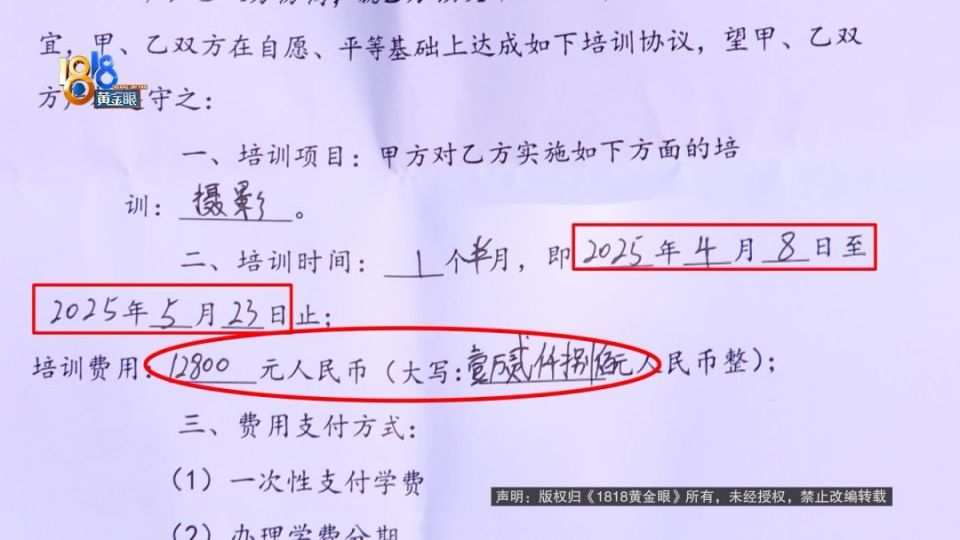 宜，甲、乙双方在自愿、平等基础上达成如下培训协议，望甲、乙双
方
守之：
1818
黄金眼
一、培训项目：甲方对乙方实施如下方面的培
训：摄影。
二、培训时间：1个半月，即2025年4月8日至
2025年5月23日止；
培训费用：12800元人民币（大写：壹万贰仟捌佰元人民币整）；
三、费用支付方式：
（1）一次性支付学费
（2）办理学费分期
声明：版权归《1818黄金眼》所有，未经授权，禁止改编转载